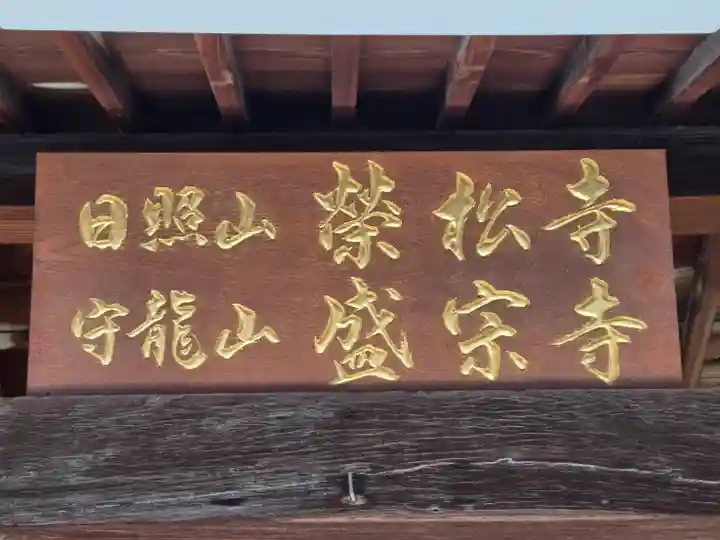 日照山榮松寺
守龍山盛宗寺